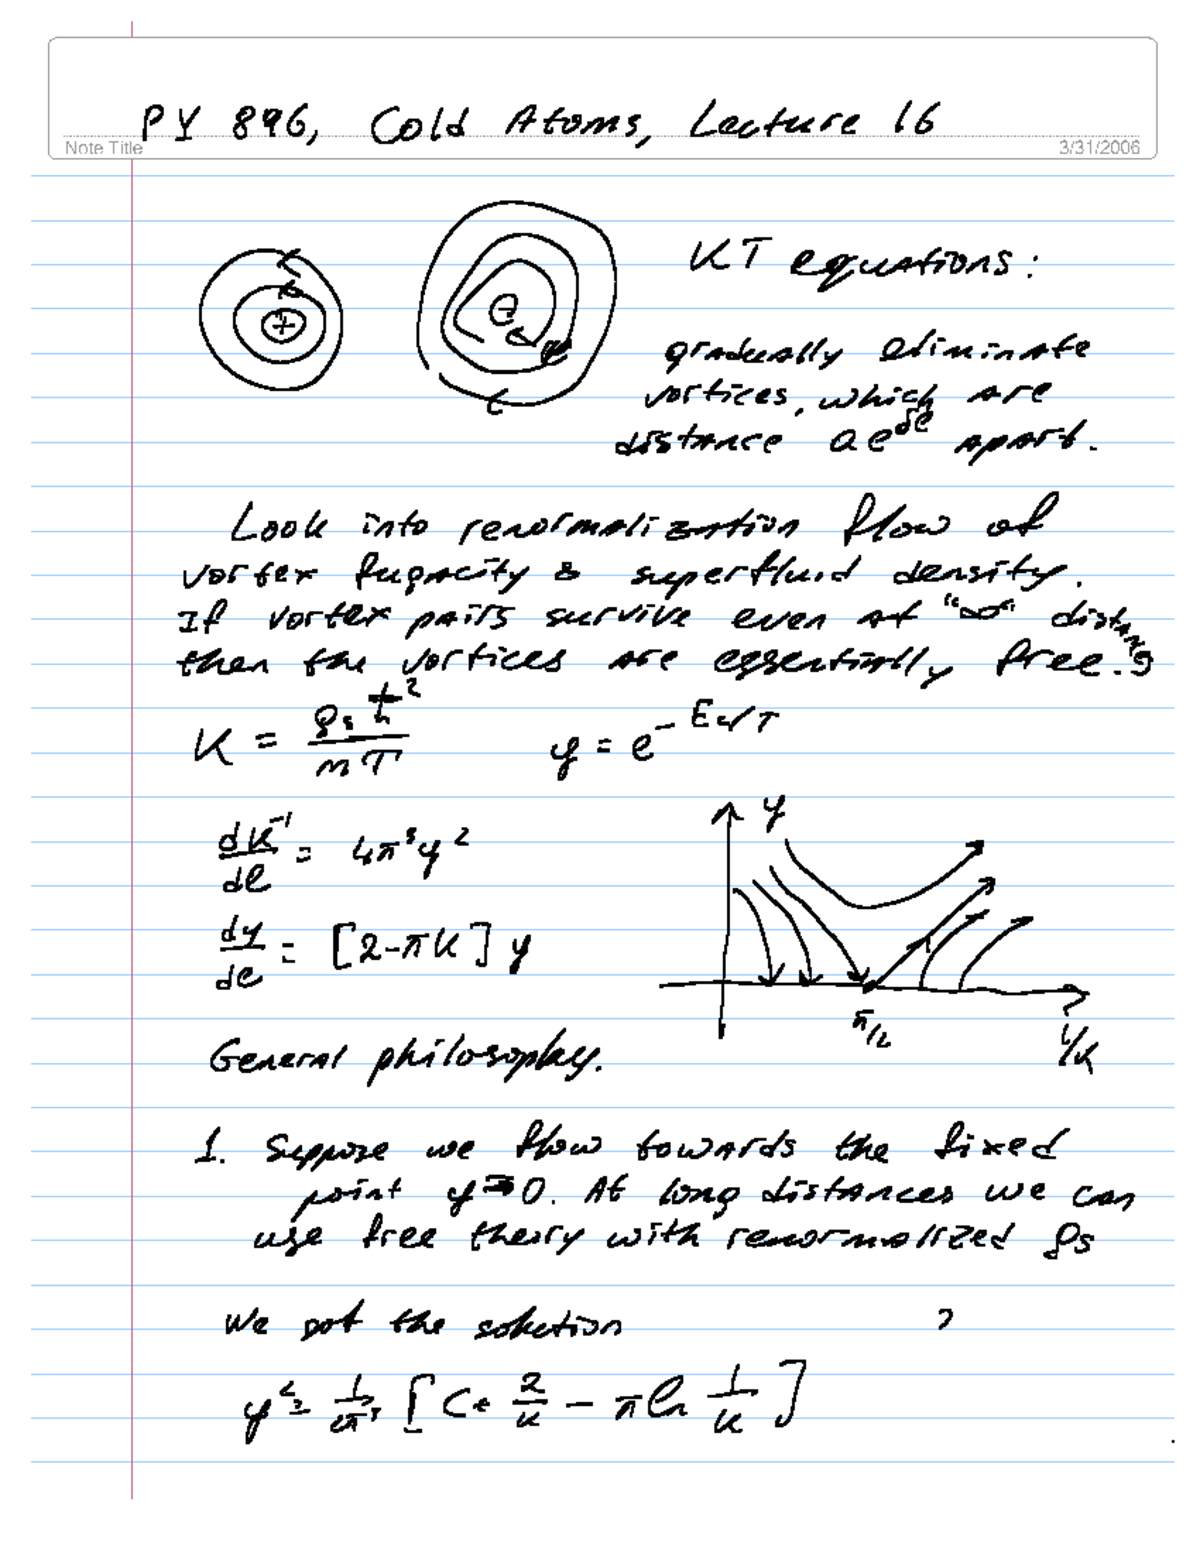 PY 896, Cold Atoms, Lecture 16
Note Title
3/31/2006
+
KT equations:
gradually eliminate
vortices, which are
distance a e^{δl} apart.
Look into renormalization flow of
vortex fugacity & superfluid density.
If vortex pairs survive even at "∞" distance
then the vortices are essentially free.
K = ρs ħ² / mT
y = e^{-Ec/T}
dK⁻¹/dl = 4π³y²
dy/dl = [2-πK] y
y
π/2
1/K
General philosophy.
1. Suppose we flow towards the fixed
point y=0. At long distances we can
use free theory with renormalized ρs
We got the solution
y² = 1/4π³ [C + 2/K - π ln 1/K]